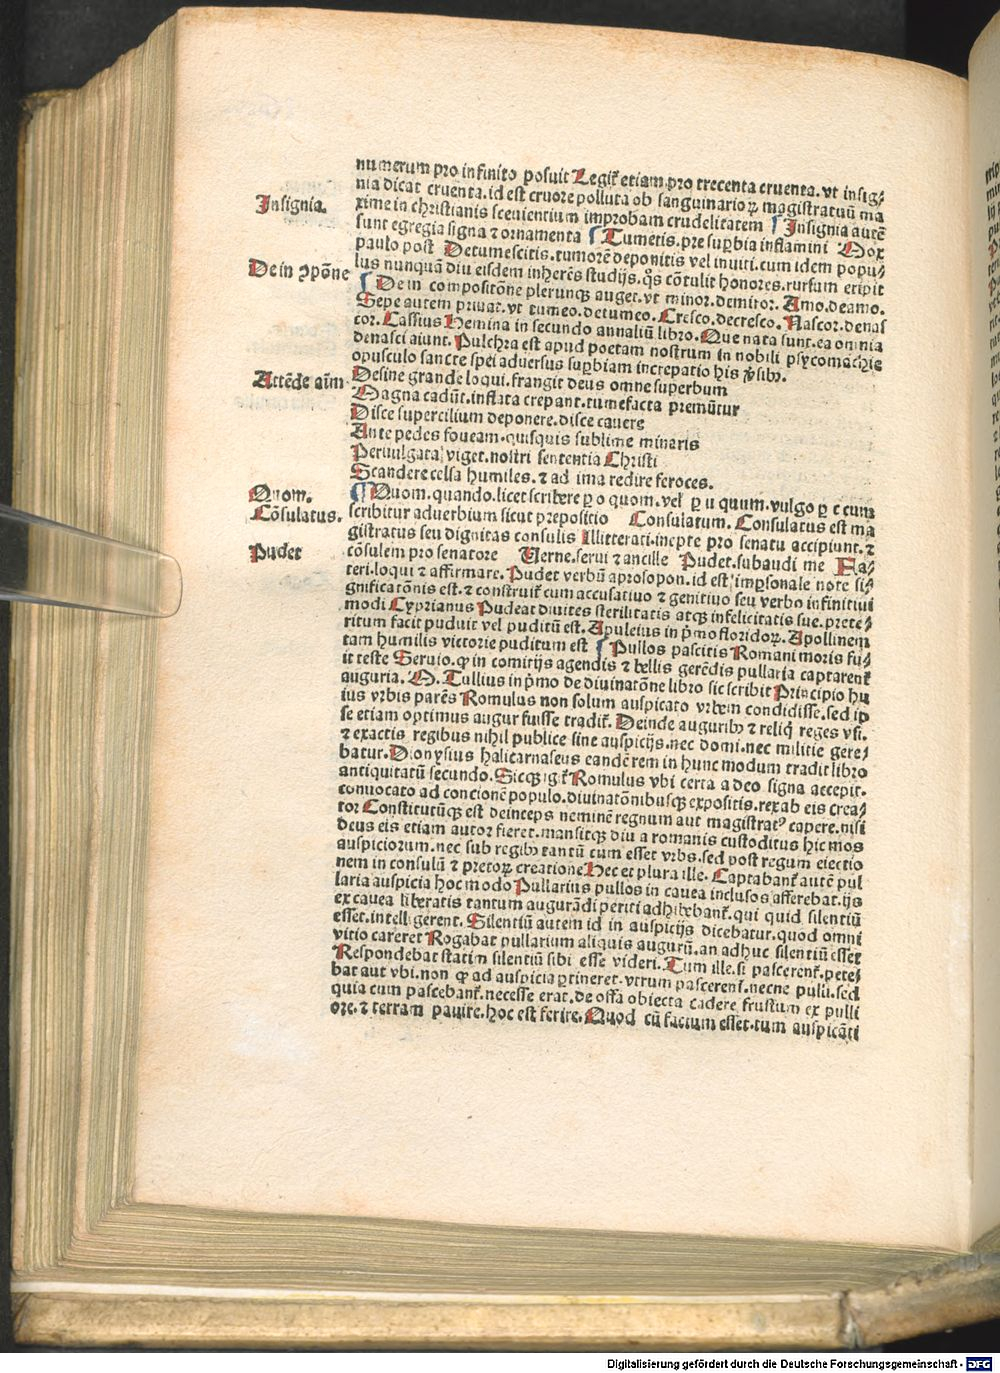 numerum pro infinito posuit Legit̃ etiam pro trecenta cruenta. vt insig⸗
nia dicat cruenta. id est cruore polluta ob sanguinarioꝝ magistratuū ma
Insignia.
xime in christianis sceuientium improbam crudelitatem ¶ Insignia autē
sunt egregia signa ⁊ ornamenta ¶ Tumetis. pre suꝑbia inflamini Mox
paulo post Detumescitis. tumorē deponitis vel inuiti. cum idem popu⸗
Dein ꝯpōne
lus nunquā diu eisdem inherēs studijs. q̄s cōtulit honores. rursum eripit
¶ Dein compositōne plerunqꝫ auget. vt minor. deminor. Amo. deamo.
Sepe autem priuat. vt tumeo. detumeo. Cresco. decresco. Nascor. denas
cor. Cassius Hemina in secundo annaliū libro. Que nata sunt. ea omnia
denasci aiunt. Pulchra est apud poetam nostrum in nobili psycomachie
opusculo sancte spei aduersus suꝑbiam increpatio his v̓sibꝫ.
Attēde aīm
Desine grande loqui. frangit deus omne superbum
Magna cadūt. inflata crepant. tumefacta premūtur
Disce supercilium deponere. disce cauere
Ante pedes foueam. quisquis sublime minaris
Peruulgata viget. nostri sententia Christi
Scandere celsa humiles. ⁊ ad ima redire feroces.
Quom.
¶ Quom. quando. licet scribere ꝑ o quom. vel ꝑ u quum. vulgo ꝑ c cum
Cōsulatus.
scribitur aduerbium sicut prepositio Consulatum. Consulatus est ma
gistratus seu dignitas consulis Illitterati. inepte pro senatu accipiunt. ⁊
Pudet
cōsulem pro senatore Verne. serui ⁊ ancille Pudet. subaudi me Fa⸗
teri. loqui ⁊ affirmare. Pudet verbū aprosopon. id est imꝑsonale note si⸗
gnificatōnis est. ⁊ construit̃ cum accusatiuo ⁊ genitiuo seu verbo infinitiui
modi Cyprianus Pudeat diuites sterilitatis atqꝫ infelicitatis sue. prete⸗
ritum facit puduit vel puditū est. Apuleius in p̓mo floridoꝝ. Apollinem
tam humilis victorie puditum est ¶ Pullos pascitis Romani moris fu⸗
it teste Seruio. ꝙ in comitijs agendis ⁊ bellis gerēdis pullaria captarent̃
auguria. M. Tullius in p̓mo de diuinatōne libro sic scribit Principio hu
ius vrbis parēs Romulus non solum auspicato vrbem condidisse. sed ip
se etiam optimus augur fuisse tradit̃. Deinde auguribꝫ ⁊ reliq̓ reges vsi.
⁊ exactis regibus nihil publice sine auspicijs. nec domi. nec militie gere⸗
batur. Dionysius halicarnaseus eandē rem in hunc modum tradit libro
antiquitatū secundo. Sicqꝫ igit̃ Romulus vbi certa a deo signa accepit.
conuocato ad concionē populo. diuinatōnibusqꝫ expositis. rex ab eis crea⸗
tor Constitutūqꝫ est deinceps neminē regnum aut magistratꝰ capere. nisi
deus eis etiam autor fieret. mansitqꝫ diu a romanis custoditus hic mos
auspiciorum. nec sub regibꝫ tantū cum esset vrbs. sed post regum eiectio
nem in consulū ⁊ pretoꝝ creatione Hec et plura ille. Captabant̃ autē pul
laria auspicia hoc modo Pullarius pullos in cauea inclusos afferebat. ijs
ex cauea liberatis tantum augurādi periti adhibebant̃. qui quid silentiū
esset. intelligerent. Silentiū autem id in auspicijs dicebatur. quod omni
vitio careret Rogabat pullarium aliquis augurū. an adhuc silentiū esset
Respondebat statim silentiū sibi esse videri. Tum ille. si pascerent̃. pete⸗
bat aut vbi. non ꝙ ad auspicia ꝑtineret. vtrum pascerent̃. necne pulli. sed
quia cum pascebant̃. necesse erat. de offa obiecta cadere frustum ex pulli
ore. ⁊ terram pauire. hoc est ferire. Quod cū factum esset. tum auspicāti
Digitalisierung gefördert durch die Deutsche Forschungsgemeinschaft - DFG